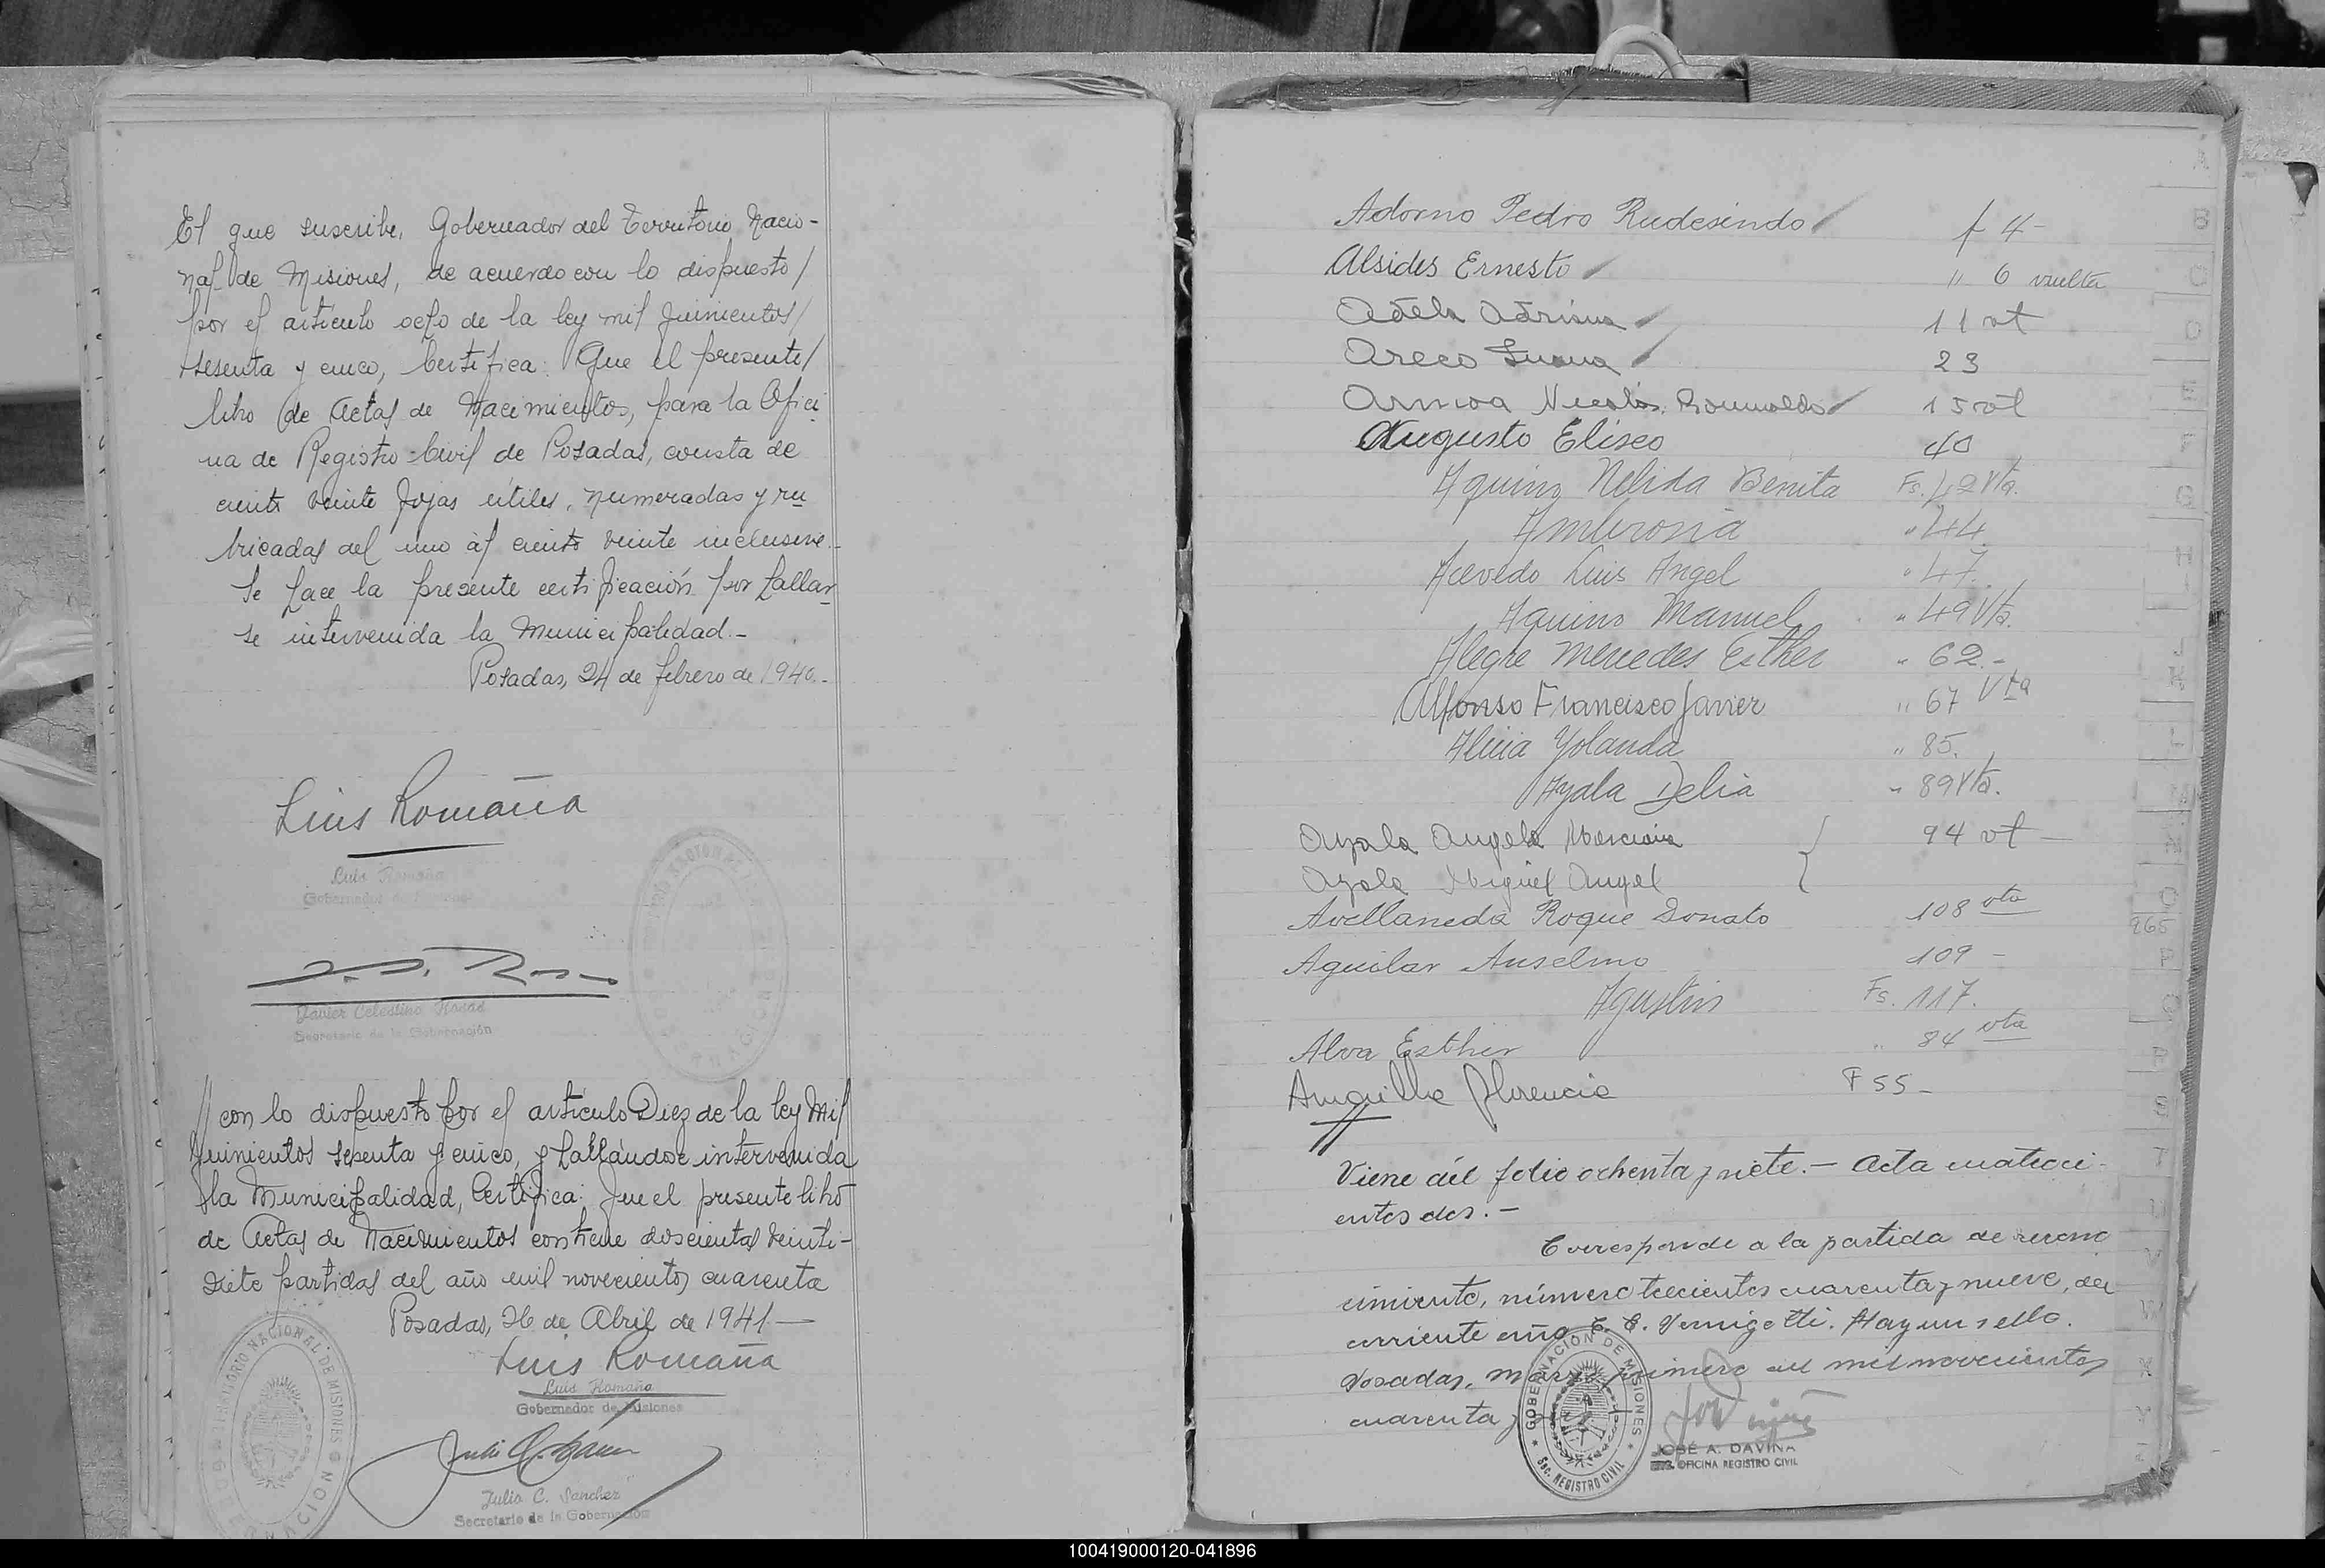 El que suscribe, Gobernador del Territorio Nacio-
nal de Misiones, de acuerdo con lo dispuesto/
por el artículo ocho de la ley mil quinientos/
sesenta y cinco, Certifica: Que el presente/
libro de Actas de Nacimientos, para la Ofici
na de Registro Civil de Posadas, consta de
ciento veinte fojas útiles, numeradas y ru
bricadas del uno al ciento veinte inclusive.-
Se hace la presente certificación por hallar-
se intervenida la Municipalidad.-
Posadas, 24 de febrero de 1940.-
Luis Romaña
Luis Romaña
Gobernador de Misiones
Javier Celestino Rosas
Secretario de la Gobernación
// con lo dispuesto por el artículo Diez de la ley Mil
quinientos sesenta y cinco, y hallándose intervenida
la Municipalidad, Certifica: que el presente libro
de Actas de Nacimientos contiene doscientas veinti-
siete partidas del año mil novecientos cuarenta
Posadas, 26 de Abril de 1941-
Luis Romaña
Luis Romaña
Gobernador de Misiones
Julio C. Sanchez
Secretario de la Gobernación
TERRITORIO NACIONAL DE MISIONES GOBERNACION
Adorno Pedro Rudesindo f 4-
Alsides Ernesto " 6 vuelta
Adela Adriana 11 vt
Areco Juana 23
Armoa Nicolás Romualdo 15 vt
Augusto Eliseo 40
Aquino Nelida Benita Fs. 42 Vta.
Ambrosia " 44
Acevedo Luis Angel " 47.
Aquino Manuel " 49 Vta.
Alegre Mercedes Esther " 62.-
Alfonso Francisco Javier " 67 Vta
Alicia Yolanda " 85.
Ayala Delia " 89 Vta.
Ayala Angela Marciana } 94 vt -
Ayala Miguel Angel
Avellaneda Roque Donato 108 vta
Aguilar Anselmo 109 -
Agustin Fs. 117.
Alva Esther " 84 vta
Florencia F 55-
Viene del folio ochenta y siete.- Acta cuatroci-
entos dos.-
Corresponde a la partida de recono
cimiento, número trecientos cuarenta y nueve, del
corriente año Hay un sello.
Posadas, marzo primero de mil novecientos
cuarenta y
GOBERNACION DE MISIONES
Sec. REGISTRO CIVIL
JOSÉ A. DAVIÑA
OFICINA REGISTRO CIVIL
265
100419000120-041896